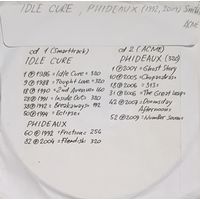 IDLE CURE, PHIDEAUX (1992, 2009)
ACME
cd 1 (Smarttrack)
IDLE CURE
1 ℗1986 = Idle Cure = 320
9 ℗1988 = Tough Love = 320
18 ℗1990 = 2nd Avenue = 160
28 ℗1991 = Inside Out = 320
38 ℗1992 = Breakaway = 192
50 ℗1994 = Eclipse
PHIDEAUX
60 ℗1992 = Friction = 256
82 ℗2004 = Fiendish = 320
cd 2 (ACME)
PHIDEAUX (320)
1 ℗2004 = Ghost Story
10 ℗2005 = Chupacabras
18 ℗2006 = 313
31 ℗2006 = The Great Leap
42 ℗2007 = Doomsday Afternoon
52 ℗2009 = Number Seven